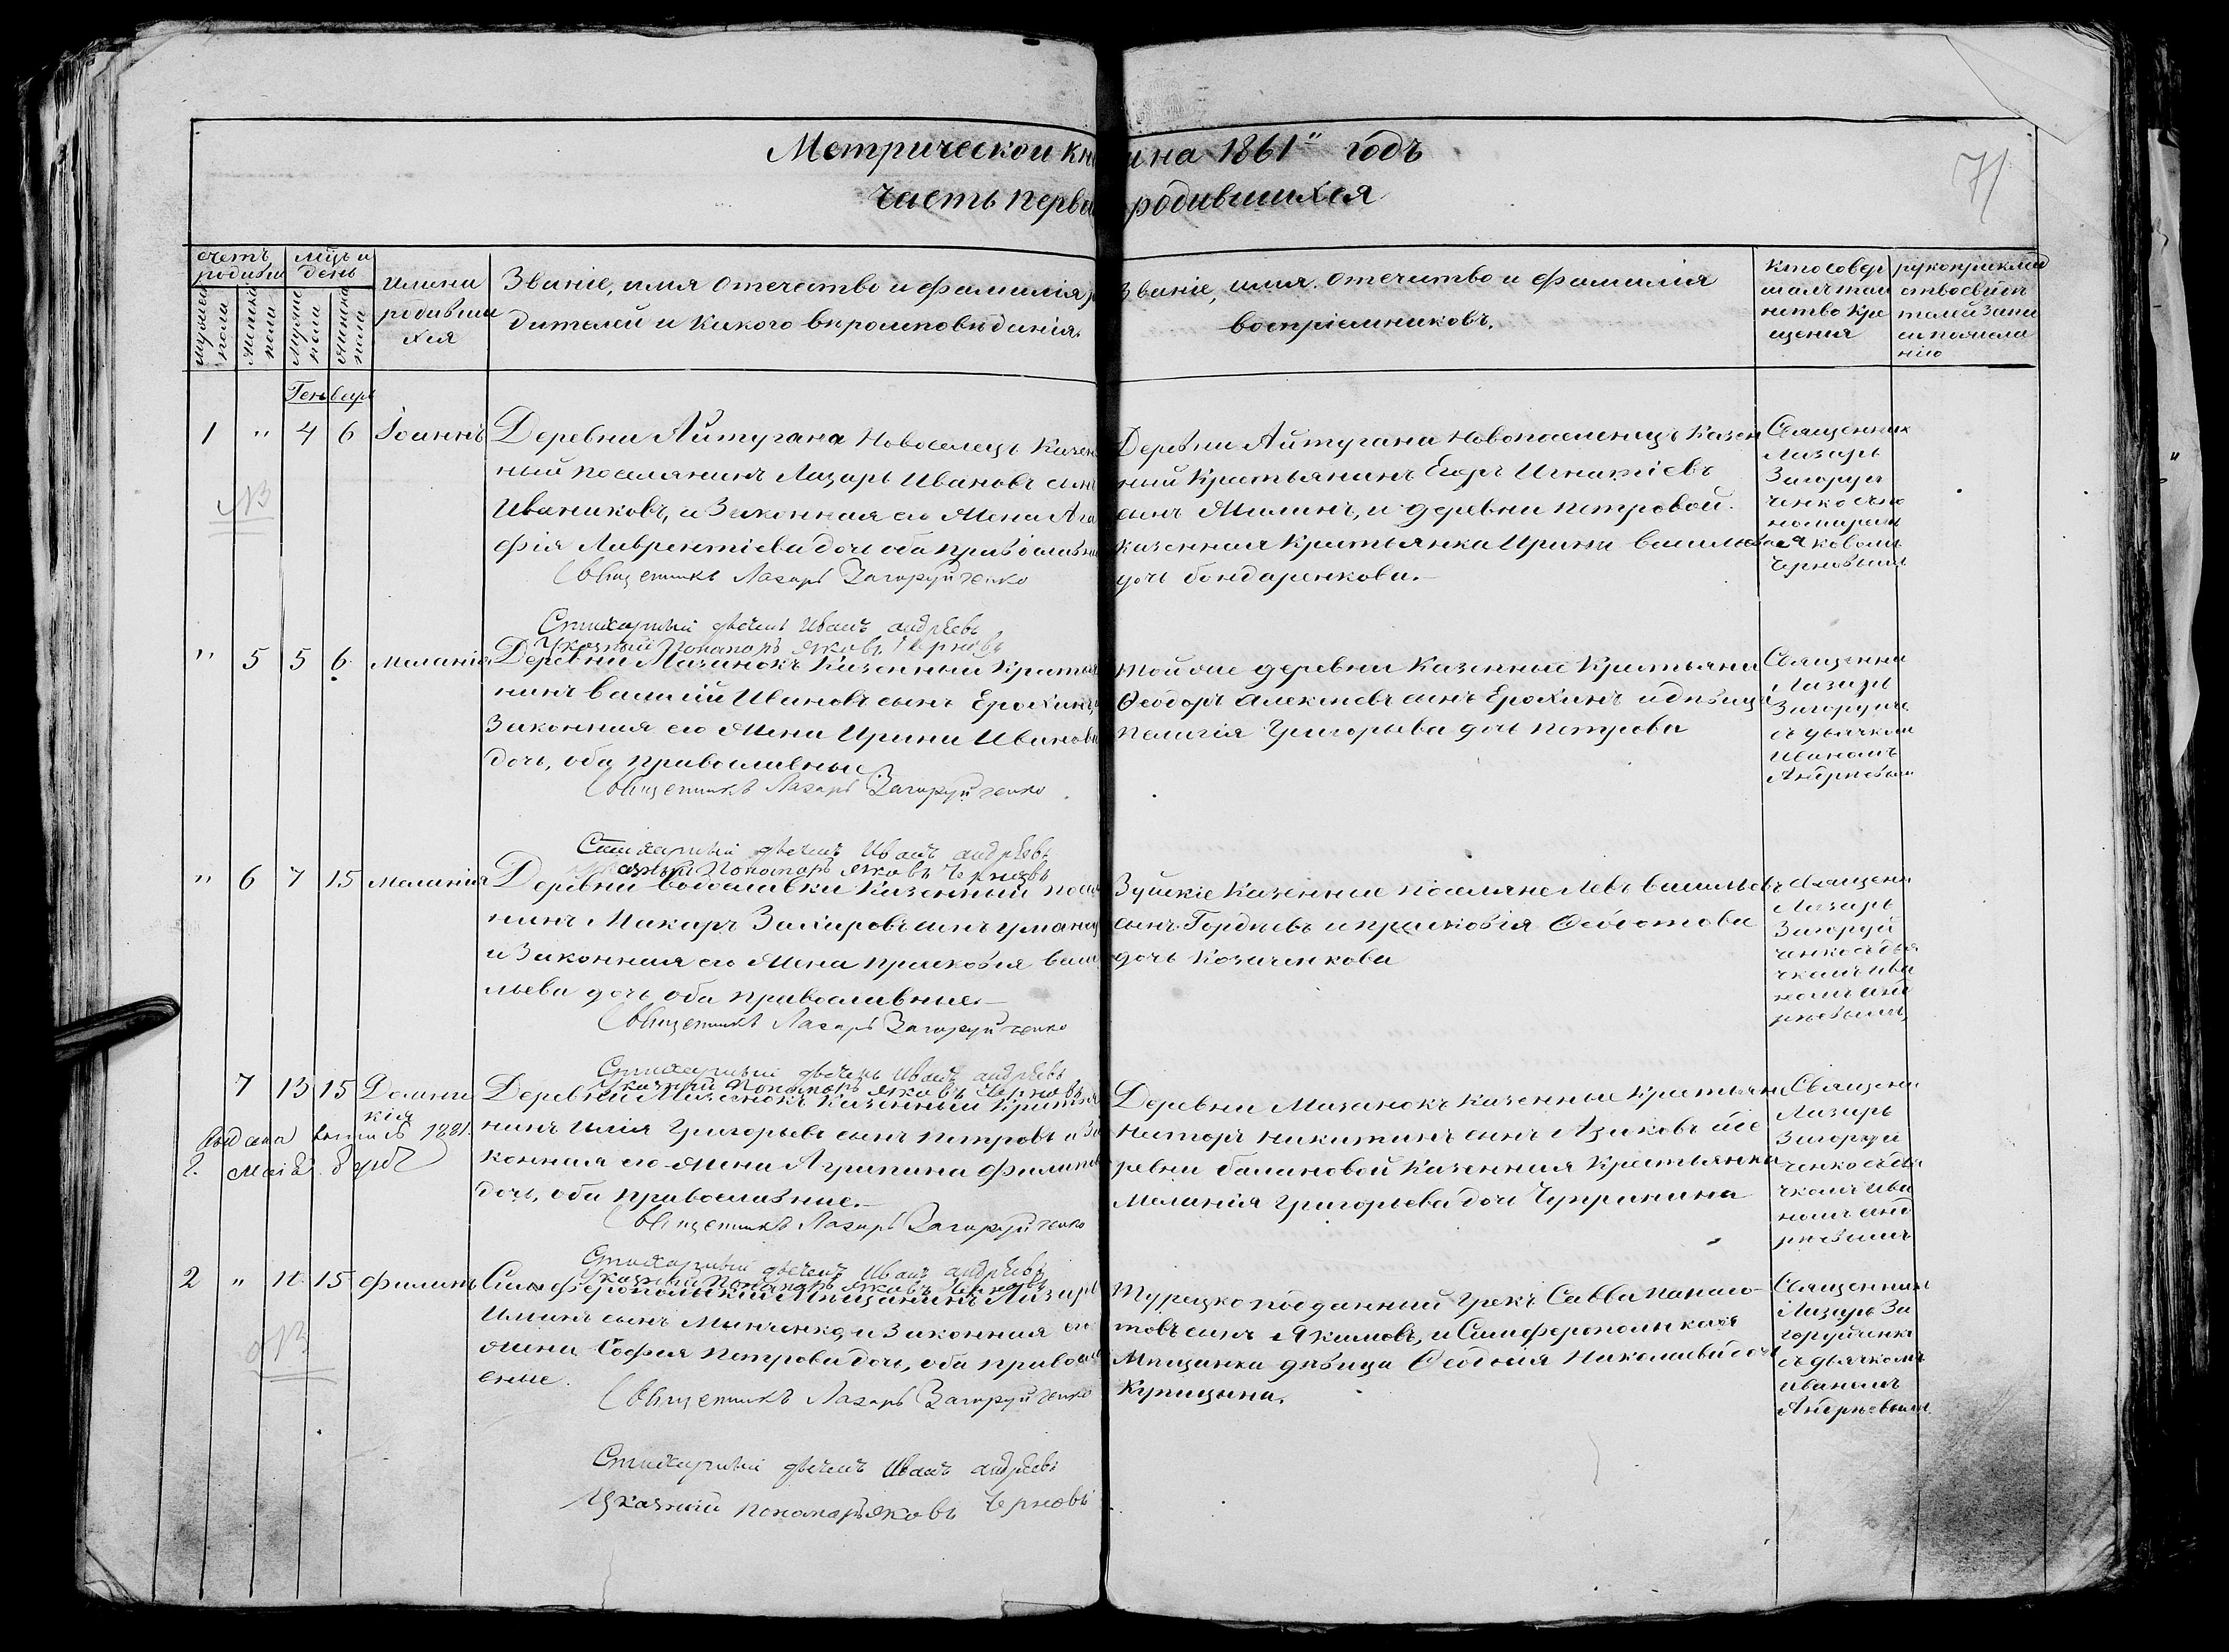 Метрической кни на 1861" годъ
Часть перва родившихся
71
счетъ родивши
мѣць и день
имена родивши хся
Званіе, имя отечество и фамилія ро
дителей и какого вѣроисповѣданія.
Званіе, имя. отечество и фамилія
воспріемниковъ.
Кто совер
шалъ таи
нство Кре
щенія
рукоприклад
ство свидѣ
телей запи
си пожела
нію
мужеска пола
женска пола
Генварь
1 " 4 6 Іоаннъ
Деревни Айтугана Новоселецъ Казен
ный поселянинъ Лазарь Ивановъ сынъ
Иваниковъ, и Законная его Жена Ага
фія Лаврентіева дочь оба православны
Священникъ Лазарь Загоруйченко
Стихарный дьячекъ Иванъ андрѣевъ
Указный Пономарь яковъ Черновъ
Деревни Айтугана Новопоселенецъ Казен
ный Крестьянинъ Егоръ Игнатіевъ
сынъ Милинъ, и деревни петровой.
казенная Крестьянка Ирина васильева
дочь бондаренкова.
Священник
Лазарь
Загоруй
ченко съ по
номарем
Яковомъ
Черновымъ
" 5 5 6 Меланія
Деревни Мазанокъ Казенный Крестья
нинъ василій Ивановъ сынъ Ерохинъ, и
Законная его Жена Ирина Иванова
дочь, оба православны
Священникъ Лазарь Загоруйченко
Стихарный дьячекъ Иванъ андрѣевъ
Указный Пономарь яковъ Черновъ
Той же деревни Казенные Крестьяни
Ѳеодоръ Алексѣевъ сынъ Ерохинъ и дѣвица
Пелагія Григорьева дочь петрова
Священни
Лазарь
Загоруйче
съ дьячком
Иваномъ
Андреевым
" 6 7 15 Меланія
Деревни бодславки Казенный посел
нинъ Макаръ Захаровъ сынъ уманец
и Законная его Жена прасковія васи
льева дочь оба православные.
Священникъ Лазарь Загоруйченко
Стихарный дьячекъ Иванъ андрѣевъ
Указный Пономарь яковъ Черновъ
Зуйскіе Казенные поселяне Левъ васильевъ
сынъ Гордѣевъ и прасковія Ѳедотова
дочь Козаченкова
Священн
Лазарь
Загоруй
ченко съ дья
чкомъ Ива
номъ анд
рѣевымъ
7 13 15 Домни
кія
1881
Деревни Мазанокъ Казенный Крестья
нинъ Илія Григорьевъ сынъ петровъ и За
конная его Жена Агрипина Филипов
дочь, оба православные.
Священникъ Лазарь Загоруйченко
Стихарный дьячекъ Иванъ андрѣевъ
Указный Пономарь яковъ Черновъ
Деревни Мазанокъ Казенные Крестьяни
Несторъ Никитинъ сынъ Языковъ и де
ревни балановой Казенная Крестьянка
Меланія Григорьева дочь Чупринина
Священн
Лазарь
Загоруй
ченко съ дья
чкомъ Ива
номъ анд
рѣевымъ
2 " 11 15 Филипъ
Симферопольскій Мѣщанинъ Лазарь
Ильинъ сынъ Минченко, и Законная его
жена София петрова дочь, оба правосла
вные.
Священникъ Лазарь Загоруйченко
Стихарный дьячекъ Иванъ андрѣевъ
Указный Пономарь яковъ Черновъ
Турецкоподданный Грекъ Савва Панаіо
товъ сынъ Якимовъ, и Симферопольская
Мѣщанка дѣвица Ѳеодосія Николаева дочь
Купицына.
Священник
Лазарь За
горуйченк
съ дьячкомъ
Иваномъ
Андреевымъ